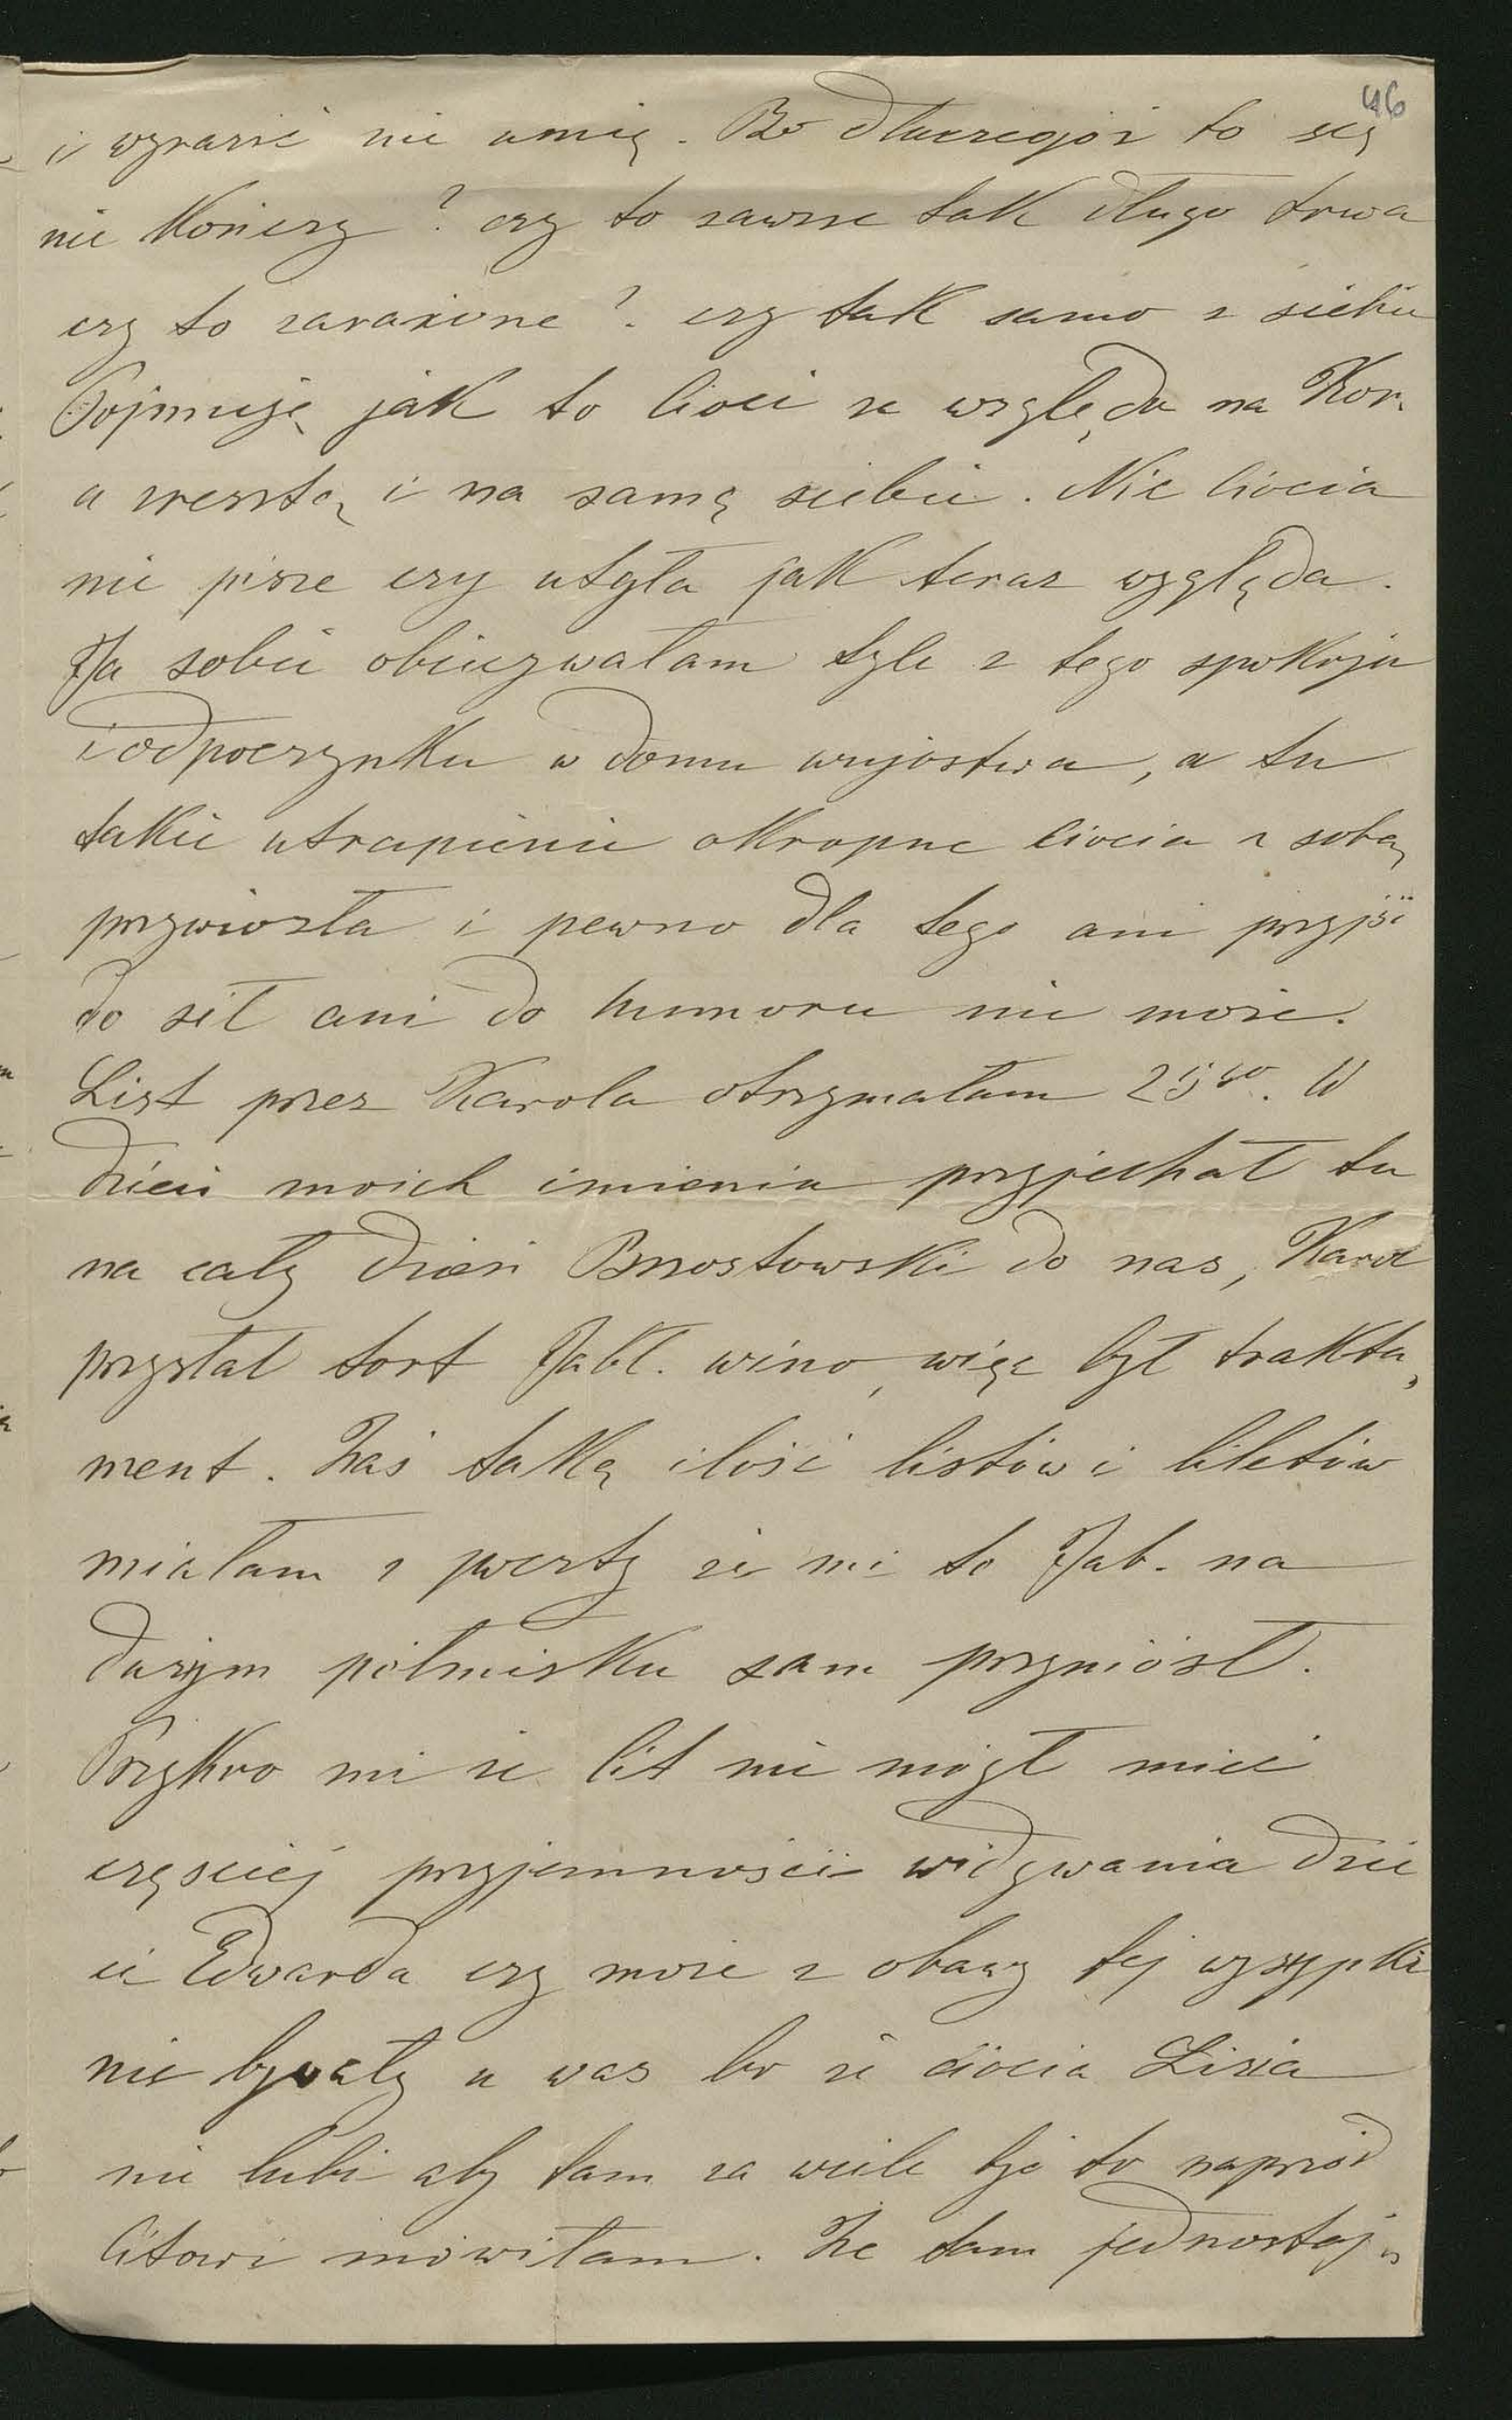 46
i wyrazić nie umię. Bo dlaczegoż to się
nie kończy? czy to zawsze tak długo trwa
czy to zaraźone? czy tak samo z siebie
Pojmuję jak to cioci ze względu na Kor.
a zresztą i na samą siebie. Nic ciocia
nie pisze czy utyła jak teraz wygląda.
Ja sobie obiecywałam tyle z tego spokoju
i odpoczynku w domu wujostwa, a tu
takie utrapienie okropne ciocia z sobą
przywiozła i pewno dla tego ani przyjść
do sił ani do humoru nie może.
List przez Karola otrzymałam 25go. W
dzień moich imienia przyjechał tu
na cały dzień Brzostowski do nas, Karol
przysłał tort Jabł. wino, więc był trakta„
ment. Zaś taką ilość listów i biletów
miałam z poczty że mi to Jab. na
dużym półmisku sam przyniósł.
Przykro mi że Cit nie mógł mieć
częściej przyjemności widywania dzie
ci Edwarda czy może z obawy tej wysypki
nie bywały u was bo że ciocia Lizia
nie lubi aby tam za wiele być to naprzód
Citowi mówiłam. Że tam jednostaj„